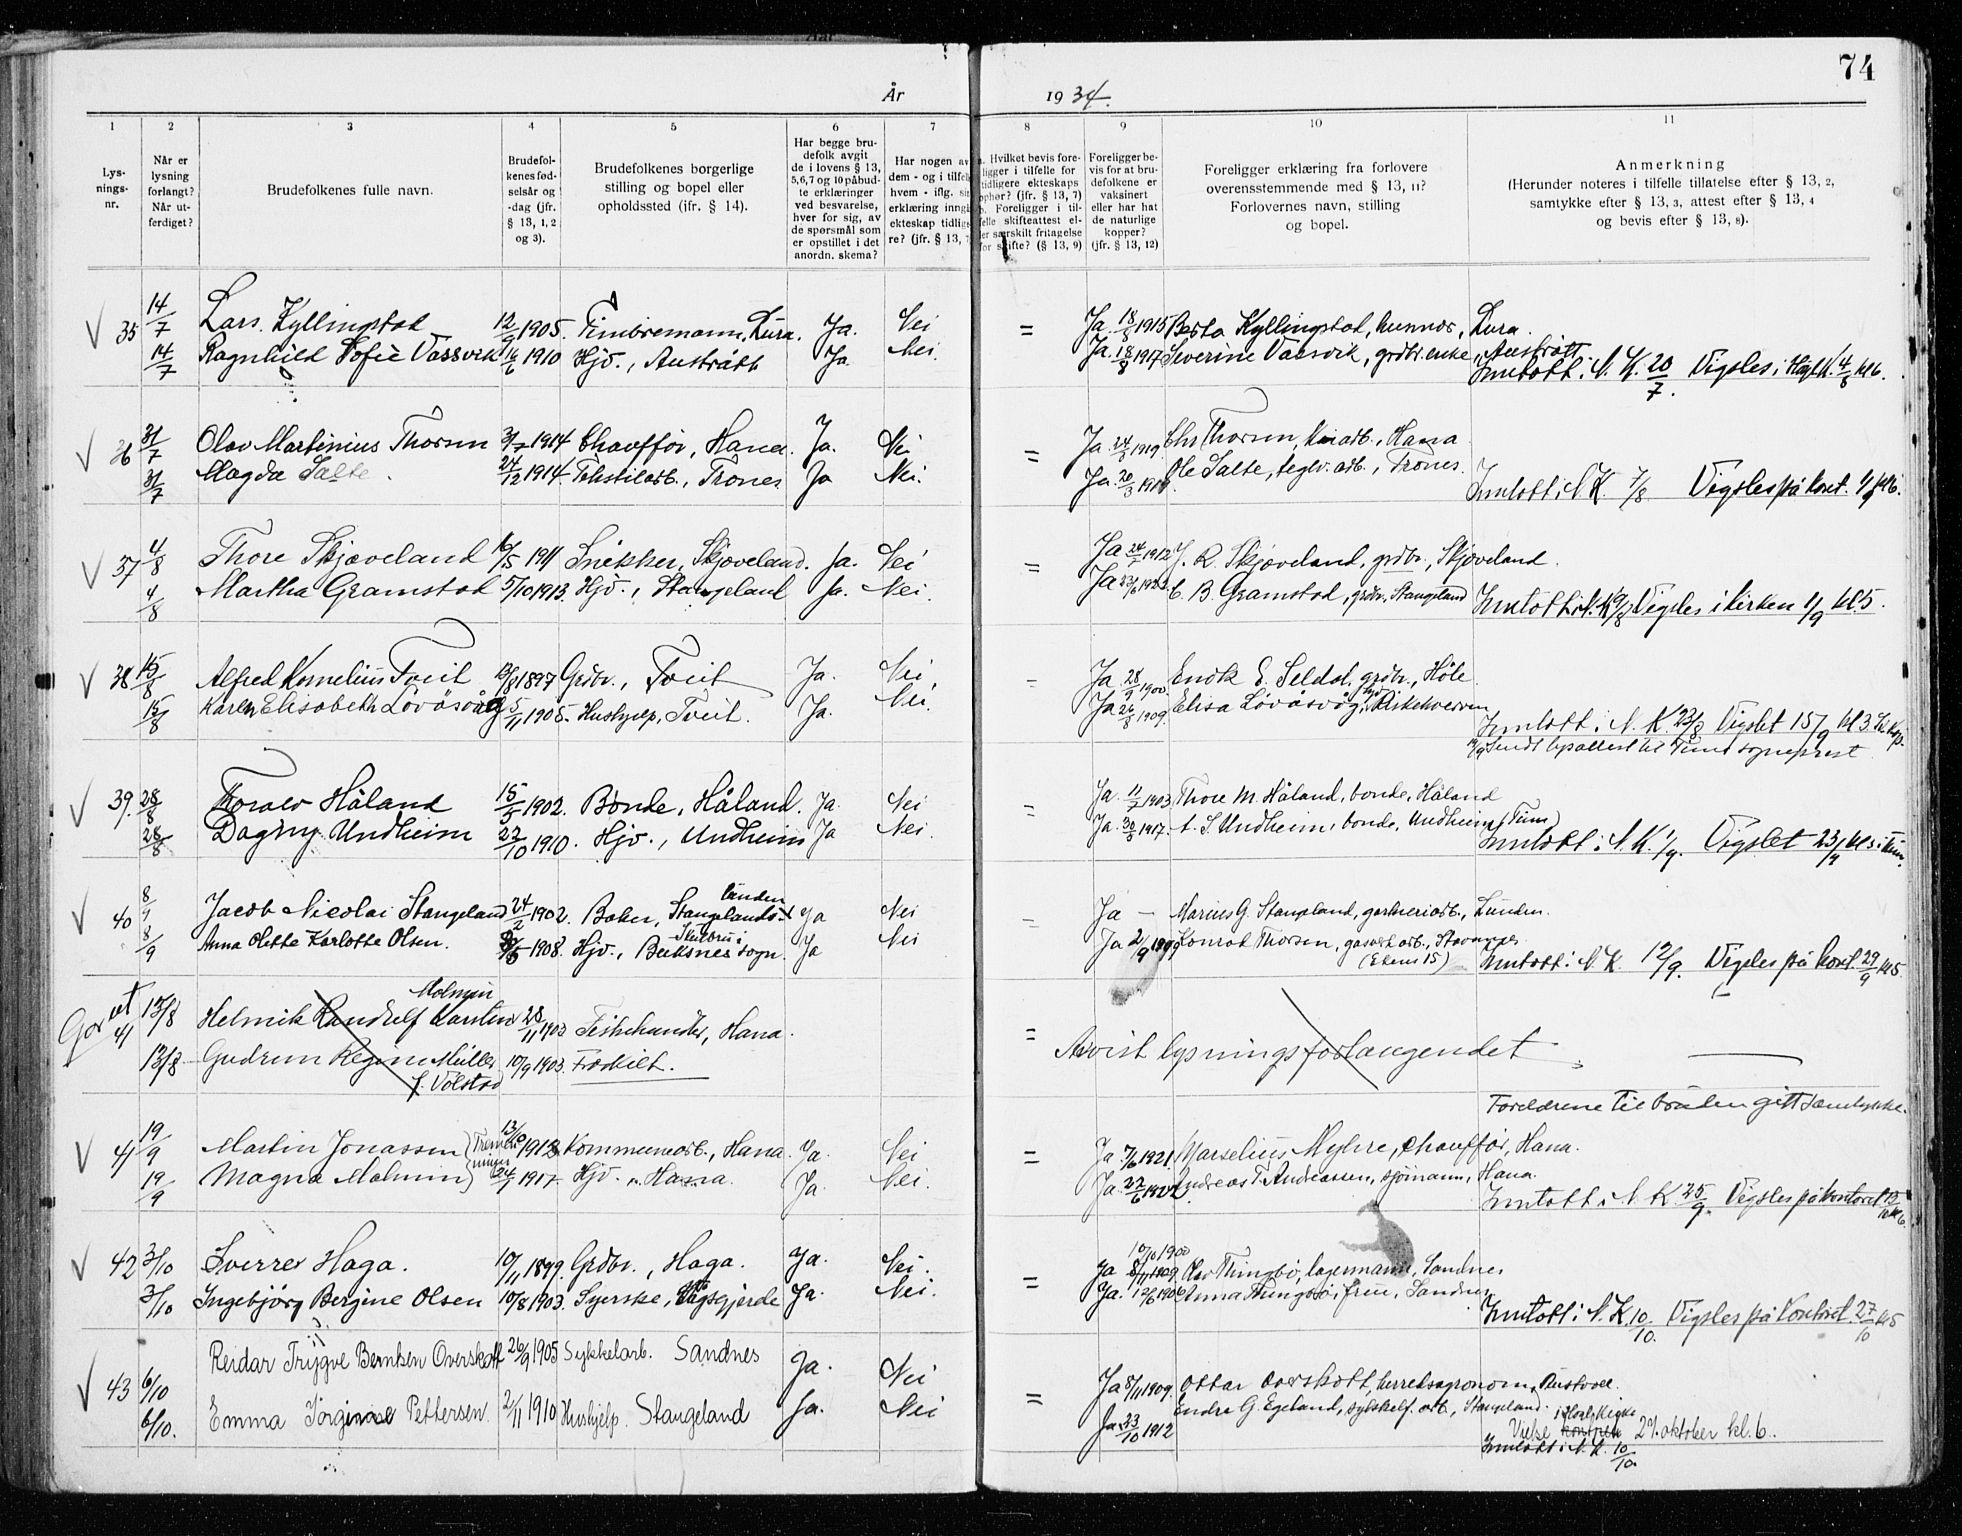 74
År 1934.
1 2 3 4 5 6 7 8 9 10 11
Lys-
nings-
nr.
Når er
lysning
forlangt?
Når ut-
ferdiget?
Brudefolkenes fulle navn.
Brudefol-
kenes fød-
selsår og
-dag (jfr.
§ 13, 1, 2
og 3).
Brudefolkenes borgerlige
stilling og bopel eller
opholdssted (jfr. § 14).
Har begge bru-
defolk avgit
de i lovens § 13,
5,6,7 og 10 påbud-
te erklæringer
ved besvarelse,
hver for sig, av
de spørsmål som
er opstillet i det
anordn. skema?
Har nogen av
dem - og i tilfelle
hvem - iflg. sin
erklæring inngått
ekteskap tidlige-
re? (jfr. § 13,
a. Hvilket bevis fore-
ligger i tilfelle for
tidligere ekteskaps
ophør? (jfr. § 13, 7)
b. Foreligger i til-
felle skifteattest el-
ler særskilt fritagelse
for skifte? (§ 13, 9)
Foreligger be-
vis for at bru-
defolkene er
vaksinert
eller har hat
de naturlige
kopper?
(jfr. § 13, 12)
Foreligger erklæring fra forlovere
overensstemmende med § 13, 11?
Forlovernes navn, stilling
og bopel.
Anmerkning
(Herunder noteres i tilfelle tillatelse efter § 13, 2,
samtykke efter § 13, 3, attest efter § 13, 4
og bevis efter § 13, 8).
35 14/7 Lars Kyllingstad 12/9 1905. Tømmermann, Lura. Ja. Nei = Ja 18/8 1915 Berta Kyllingstad, husmor, Lura.
14/7 Ragnhild Sofie Vassvik 16/6 1910 Hjv., Austrått Ja Nei. Ja 18/8 1917 Severine Vassvik, grdbr.enke, Austrått
Inntatt i N. K. 20/7. Vigsles i Høyl.K. 4/8 kl 6.
36 31/7 Olav Martinius Thorsen 3/7 1914 Chauffør, Hana. Ja. Nei = Ja 24/8 1919. Chr Thorsen, arb., Hana
31/7 Magda Salte. 24/12 1914 Tekstilarb., Trones Ja Nei. Ja. 20/3 Ole Salte, teglv. arb., Trones.
Inntatt i N. K. 7/8 Vigsles på kont.
37 4/8 Thore Skjæveland 16/5 1911 Snekker, Skjæveland. Ja. Nei = Ja 24/7 1912 J. R. Skjæveland, grdbr., Skjæveland.
4/8 Martha Gramstad 5/10 1913. Hjv., Stangeland Ja. Nei. Ja 23/6 C. B. Gramstad, grdbr. Stangeland
Inntatt i N. K 9/8 Vigsles i kirken 1/9 kl. 5.
38 15/8 Alfred Kornelius Tveit 13/8 1897 Grdbr., Tveit Ja. Nei. - Ja 28/9 1900. Endre E. Seldal, grdbr., Høle.
15/8 Karen Elisabeth Løvåsvåg 5/11 1905. Hushjelp, Tveit. Ja. Nei. Ja 26/8 1909. Elisa Løvåsvåg,
Inntatt i N. K. 23/8 Vigslet 15/9 kl 3
Sendt lysattest til Time sogneprest
39. 28/8 Torolv Håland 15/5 1902. Bonde, Håland. Ja. Nei - Ja. 11/7 1903 Thore M. Håland, bonde, Håland
28/8 Dagny Undheim 22/10 1910. Hjv., Undheim Ja Nei. Ja. 30/5 1917. A. S. Undheim, bonde, Undheim (Time)
Inntatt i N. K. 1/9. Vigslet 23/9 kl 5 i Time.
40 8/9 Jacob Nicolai Stangeland 24/2 1902. Baker, Stangelands- lunden Ja Nei - Ja — Marius G. Stangeland, gartneriarb., Lunden.
8/9 Anna Olette Karlotte Olsen. 1908. Hjv., Buksnes sogn. Ja Nei Ja 2/9 Konrad Thorsen, gasverk arb., Stavanger
Inntatt i N. K. 12/9. Vigsles på kont. 29/9 kl 5
Går ut
41 13/8 Helmik Randulf Karsten Malmin 28/11 1903 Fiskehandler, Hana. =
13/8 Gudrun Regine Müller f. Volstad 10/9 1903. Fraskilt.
Avvist lysningsforlangendet —
Foreldrene til bruden gitt samtykke.
41 19/9 Martin Jonassen 13/10 1912 Kommunearb., Hana. Ja. Nei = Ja 7/6 1921. Marselius Myhre, chauffør, Hana.
19/9 Magna Malmin 24/7 1917 Hjv. Hana. Ja. Nei. Ja. 22/6 Andreas T. Andreassen, sjømann, Hana.
Inntatt i N. K 25/9. Vigsles på kontoret
42 3/10 Sverre Haga. 10/11 1899. Grdbr., Haga. Ja. Nei. = 10/10 1900
Ja 8/11 1909. Olav Tingbø, lagermann, Sandnes
3/10 Ingebjørg Bergine Olsen 10/8 1903. Syerske, Ja. Nei. Ja. 12/6 1906 Anna Tingbø, frue, Sandnes
Inntatt i N. K 10/10. Vigsles på kontoret 27/10 kl 5
43 6/10 Reidar Trygve Berntsen Overskott 26/9 1905 Sykkelarb. Sandnes Ja. Nei = Ja 8/11 1909. Ottar Overskott, herredsagronom,
6/10. Emma Jorginne Pettersen. 2/11 1910 Hushjelp. Stangeland Ja. Nei Ja 23/10 1912 Endre G. Egeland, sykkelf. arb., Stangeland.
Vielse kontoret i Høyl. Kirke 27. oktober kl. 6.
Inntatt i N. K. 10/10